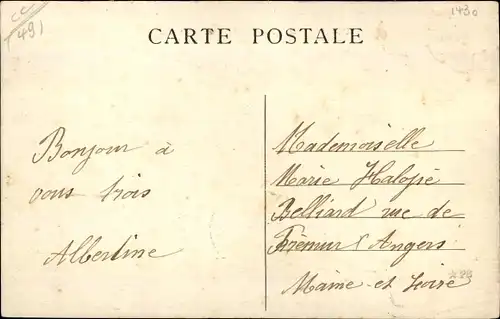 CC
(491
1430
CARTE POSTALE
Bonjour à
vous trois
Albertine
Mademoiselle
Marie Halopé
Belliard rue de
Frémur Angers
Maine-et-Loire